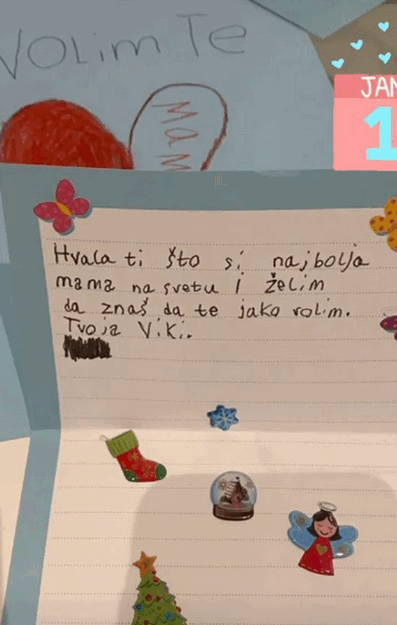 VOLIM TE
MAM
JAN
1
Hvala ti što si najbolja
mama na svetu i želim
da znaš da te jako volim.
Tvoja Viki.